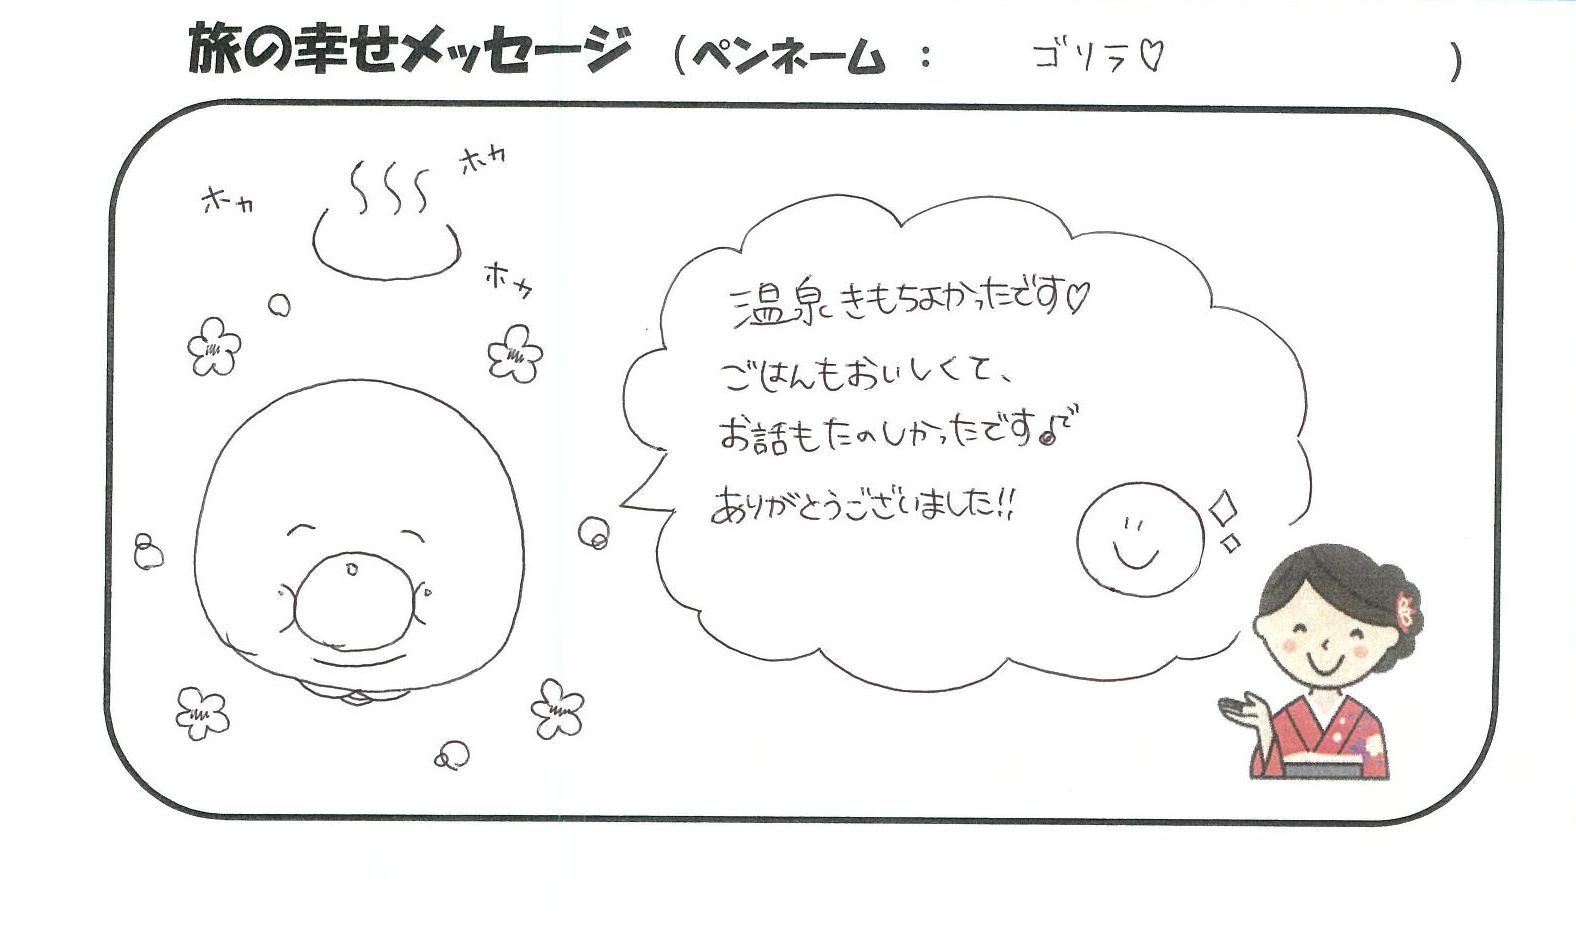 旅の幸せメッセージ (ペンネーム : ゴリラ♡ )
ホカ
ホカ
ホカ
温泉きもちよかったです♡
ごはんもおいしくて、
お話もたのしかったです♪
ありがとうございました!!